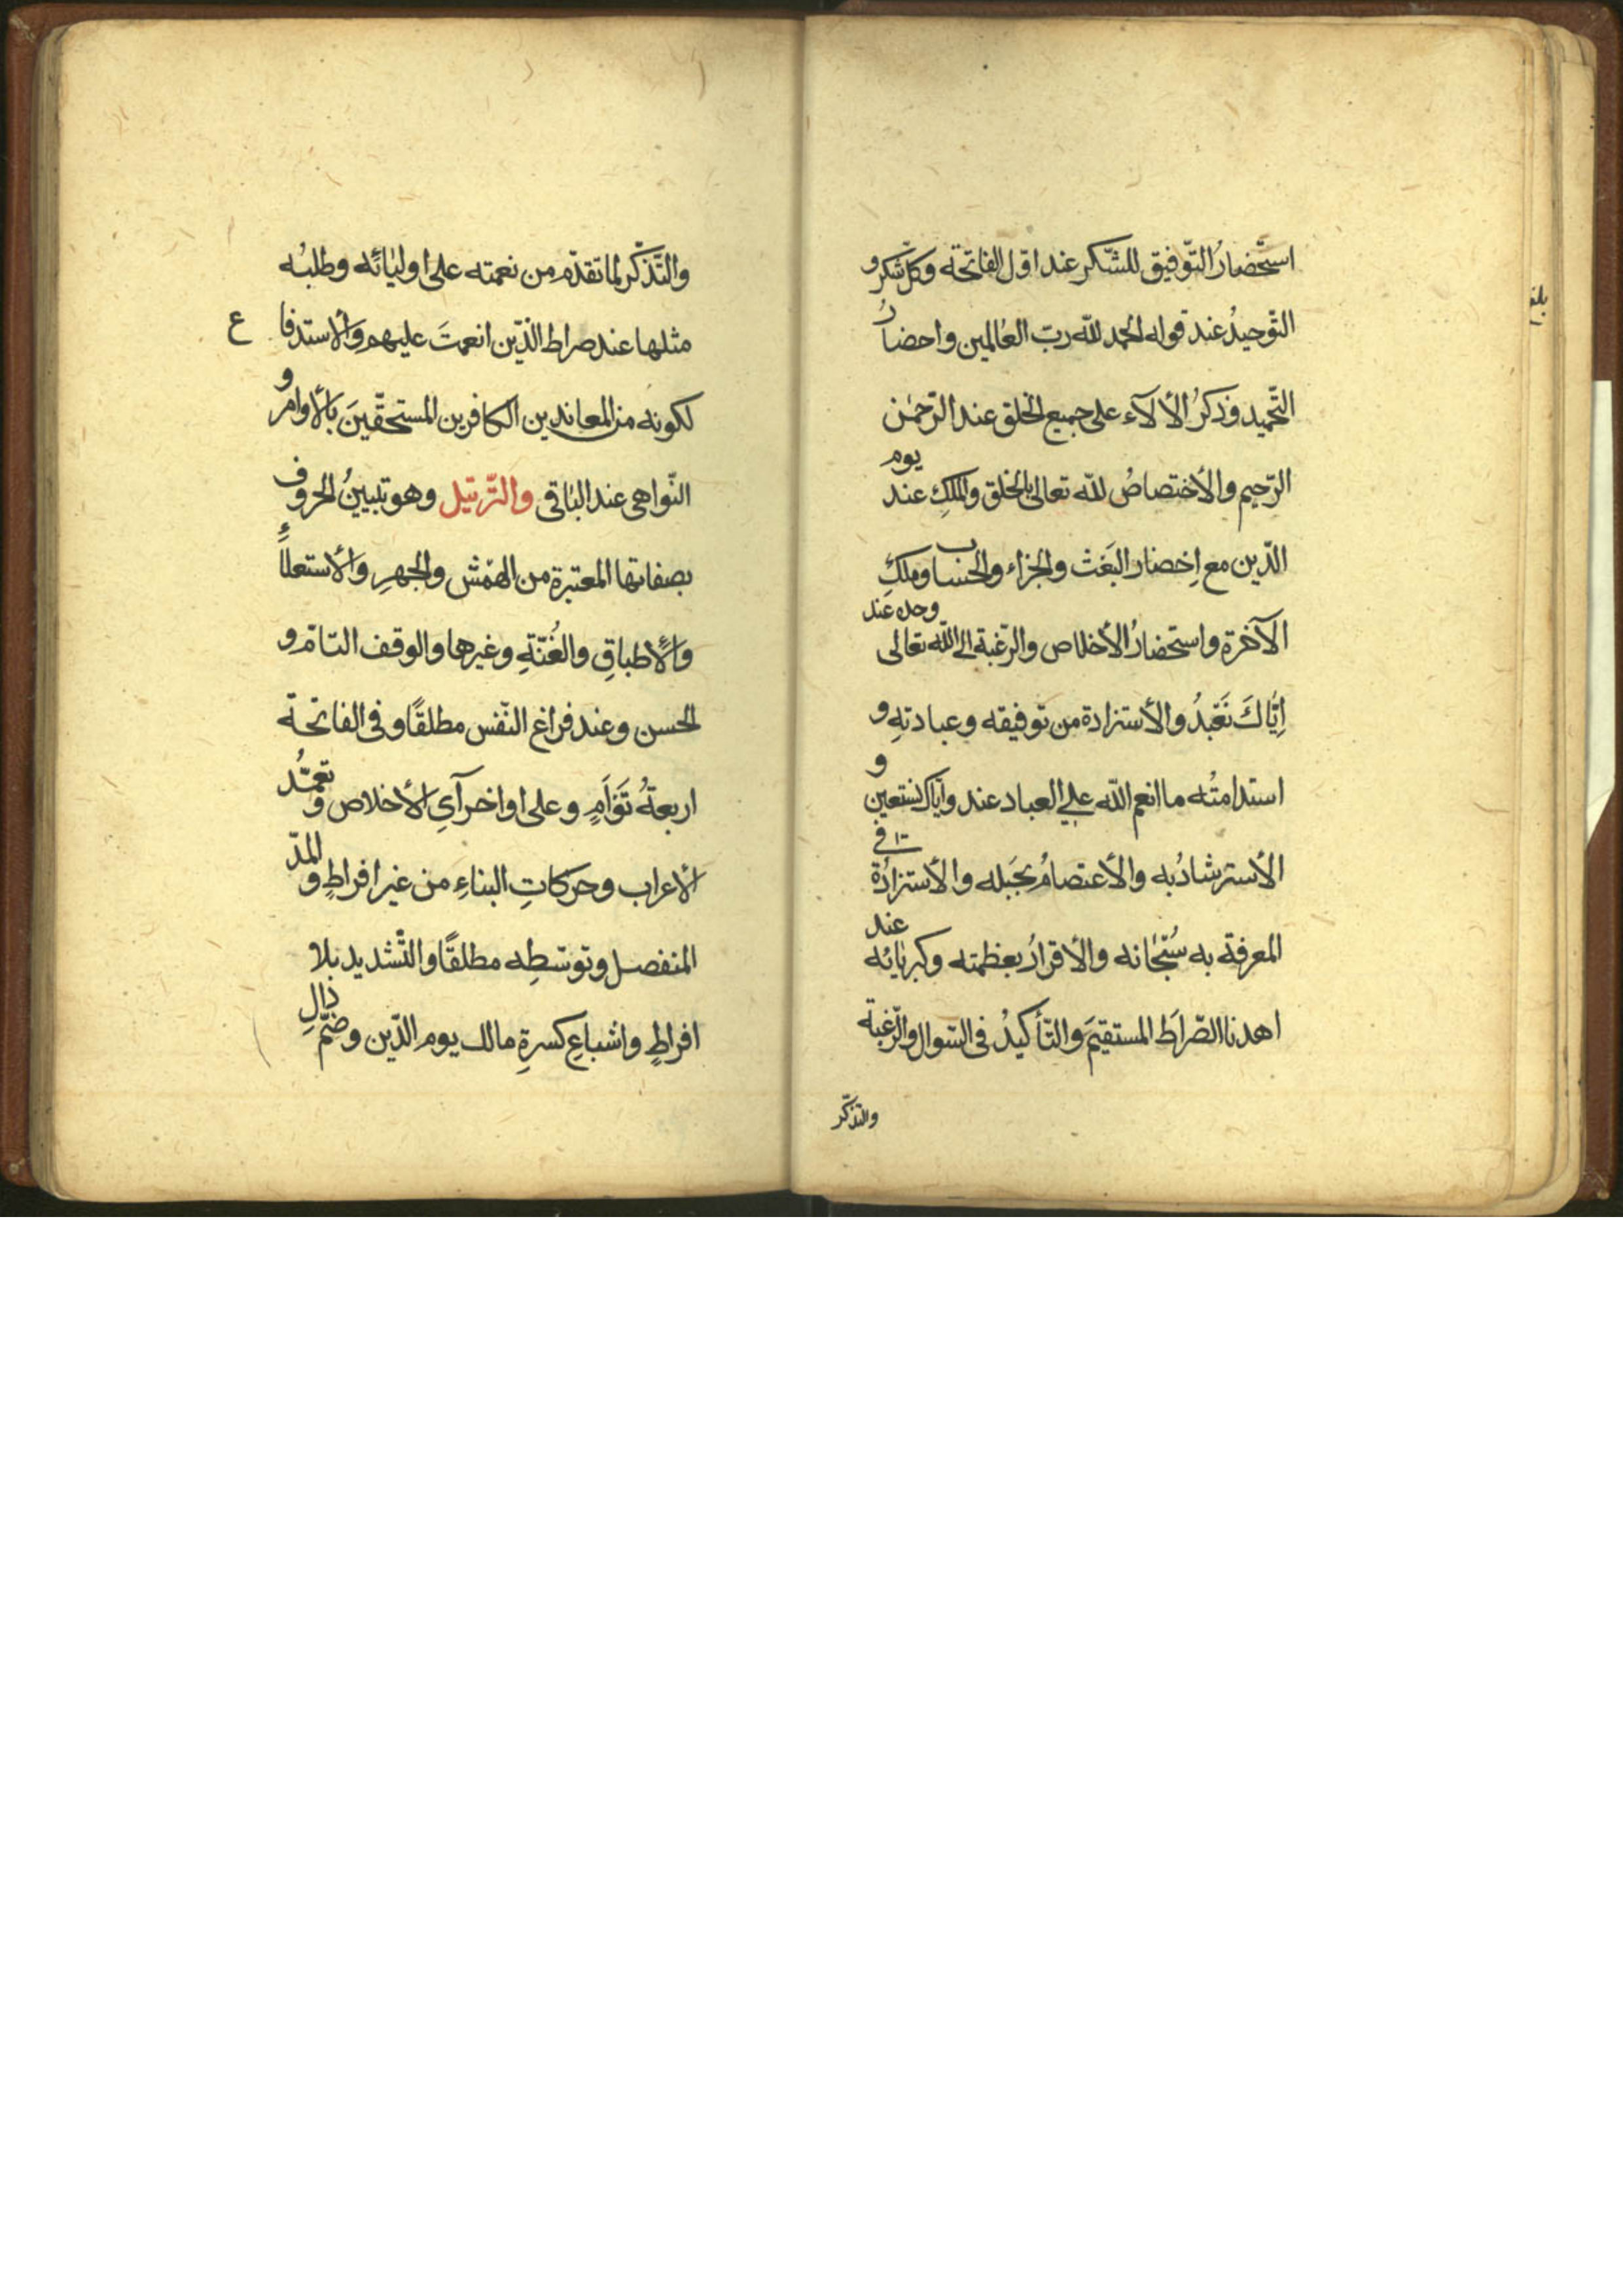 استحضارُ التّوفيق للشّكر عند اوّل الفاتحة وكلّ شكر و
التّوحيدُ عند قوله الحمد للّه ربّ العالمين واحضارُ
التّحميد وذكرُ الألآء على جميع الخلق عند الرّحمٰن
الرّحيم والأختصاصُ للّه تعالى بالخلق والملكِ عند يوم
الدّين مع اِحضار البَعَث والجزاء والحساب وملكِ
الآخرة واستحضارُ الأخلاص والرّغبة الى اللّه تعالى وحده عند
اِيّاكَ نَعْبُدُ والأستزادة من توفيقه وعبادتهِ و
استدامتُه ما انعم اللّه على العباد عند واِيّاك نستعين و
الأسترشادُ به والأعتصامُ بحَبله والأستزادُة في
المعرفة به سُبْحانه والأقرارُ بعظمته وكبريائه عند
اهدنا الصّراطَ المستقيمَ والتّأكيدُ فى السّوال والرّغبة
والتذكّر
والتّذكّر لما تقدّم من نعمته على اوليائه وطلبُه
مثلها عند صراط الذّين انعمتَ عليهم والأستدفاع
لكونه من المعاندين الكافرين المستحقّينَ بالأوامر و
النّواهى عند الباقى والتّرتيل وهو تبيينُ الحروف
بصفاتها المعتبرة من الهَمْس والجهرِ والأستعلاءِ
والأطباقِ والغُنّةِ وغيرها والوقف التامّ و
الحسن وعند فراغ النّفس مطلقًا وفى الفاتحة
اربعةُ تَوَآمٍ وعلى اواخر آىِ الأخلاص وتعمّدُ
الأعراب وحركاتِ البناءِ من غير افراطٍ والمدّ
المنفصل وتوسّطِه مطلقًا والتّشديد بلا
افراطٍ واشباعِ كسرةِ مالك يوم الدّين وضمّ دالِ